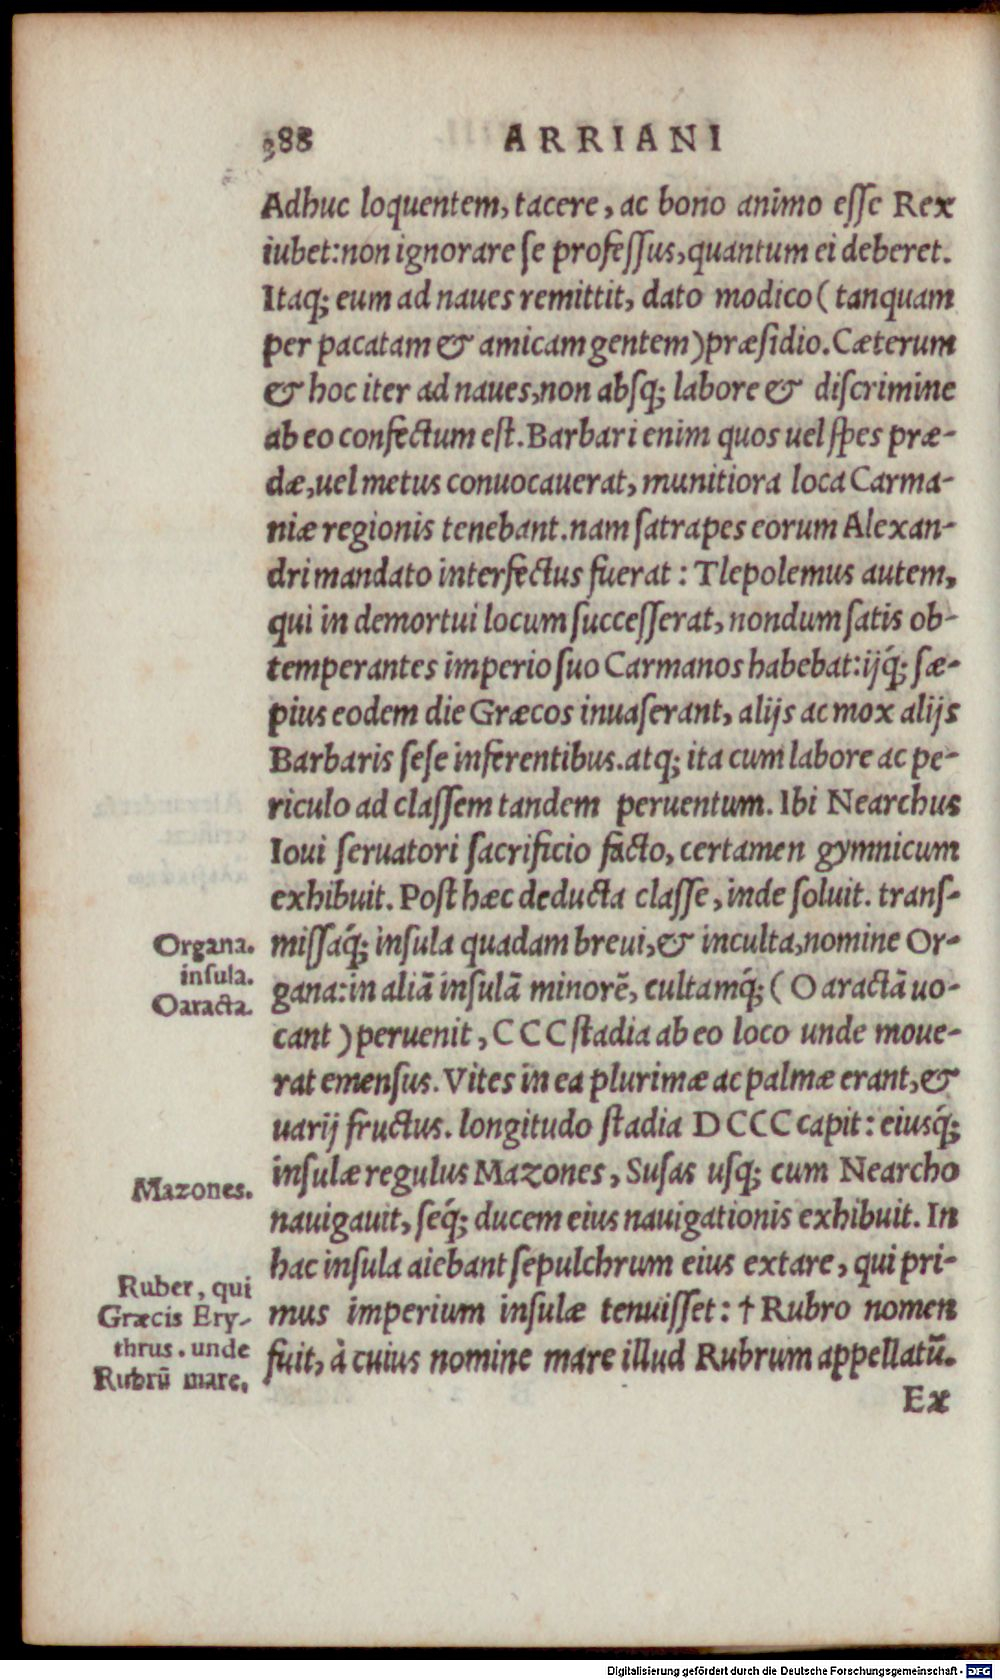 388 ARRIANI
Adhuc loquentem, tacere, ac bono animo eſſe Rex
iubet: non ignorare ſe profeſſus, quantum ei deberet.
Itaq; eum ad naues remittit, dato modico (tanquam
per pacatam & amicam gentem) præſidio. Cæterum
& hoc iter ad naues, non abſq; labore & diſcrimine
ab eo confectum eſt. Barbari enim quos uel ſpes præ-
dæ, uel metus conuocauerat, munitiora loca Carma-
niæ regionis tenebant. nam ſatrapes eorum Alexan-
dri mandato interfectus fuerat: Tlepolemus autem,
qui in demortui locum ſucceſſerat, nondum ſatis ob-
temperantes imperio ſuo Carmanos habebat: ijq́; ſæ-
pius eodem die Græcos inuaſerant, alijs ac mox alijs
Barbaris ſeſe inferentibus. atq; ita cum labore ac pe-
riculo ad claſſem tandem peruentum. Ibi Nearchus
Ioui ſeruatori ſacrificio facto, certamen gymnicum
exhibuit. Poſt hæc deducta claſſe, inde ſoluit. tranſ-
Organa.
inſula.
Oaracta.
miſſaq́; inſula quadam breui, & inculta, nomine Or-
gana: in aliā inſulā minorē, cultamq́; (Oaractā uo-
cant) peruenit, CCC ſtadia ab eo loco unde moue-
rat emenſus. Vites in ea plurimæ ac palmæ erant, &
uarij fructus. longitudo ſtadia DCCC capit: eiusq́;
Mazones.
inſulæ regulus Mazones, Suſas uſq; cum Nearcho
nauigauit, ſeq́; ducem eius nauigationis exhibuit. In
hac inſula aiebant ſepulchrum eius extare, qui pri-
Ruber, qui
Græcis Ery-
thrus. unde
Rubrū mare.
mus imperium inſulæ tenuiſſet: † Rubro nomen
fuit, à cuius nomine mare illud Rubrum appellatū.
Ex
Digitalisierung gefördert durch die Deutsche Forschungsgemeinschaft - DFG